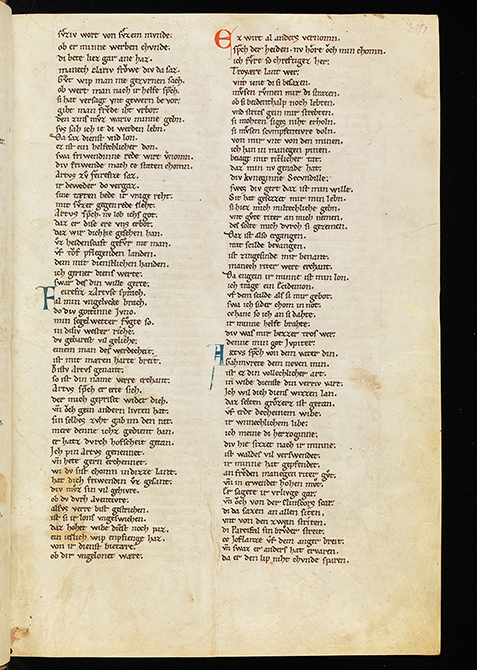 svͤziv wort von svͤzem mvnde
ob er minne werben chvnde
di bete liez gar ane haz
manech clariv frowe div da saz
Gvͦt wip man nie gezvrnen sach
ob wert man nach ir helfe sprach
si hat versagt vnt gewern bevor
gibt man frevde iht vrbor
den zins mvͦz wariv minne gebn
svs sah ich ie di werden lebn
Da saz dienst vnd lon
ez ist ein helfechlicher don
swa frivndinne rede wirt vernomn
div frivnde mach ce staten chomn
Artvs zv feirefize saz
ir deweder do vergaz
sine tæten bede ir vrage reht
mit svͤzer gegenrede sleht
Artvs sprach nv lob ichs got
daz er dise ere vns erbot
daz wir dich hie gesehen han
vz heidenschaft gefvͦr nie man
vf tovf pflegenden landen
dem mit dienstlichen handen
ich gerner dienst werte
swar des din wille gerte
Feirefiz zArtvse sprach
al min vngelvche brach
do div gotinne Jvno
min segelweter fvͦgte so
in disiv wester riche
dv gebarest vil geliche
einem man des werdecheit
ist mit mæren harte breit
Bistv Artvs genant
so ist din name verre erchant
Artvs sprach er erte sich
der mich geprist wider dich
vnd och gein andern livten hat
sin selbes zvht gab im den rat
mer denne ichz gedient han
er hatz dvrch hofscheit getan
Ich pin Artvs genennet
vnd hete gern erchennet
wi dv sist chomn indizze lant
hat dich frivwendin vz gesant
div mvͦz sin vil gehivre
ob dv dvrh aventivre
alsvs verre bist gestrichen
ist si ir lons vngeswichen
daz hohet wibe dienst noch paz
ein islich wip enpfienge haz
von ir dienst bietære
ob dir vngelonet wære
Ez wirt al anders vernomn
sprach der heiden nv hore och min chomn
ich fvͤre so chreftigez her
Troyære lant wer
vnt iene di si besazen
mvͤsen rvmen mir di strazen
ob si beidenthalp noch lebten
vnd strits gein mir strebten
si mohten siges niht erholn
si mvͤsen scumpfentivre doln
von mir vnt von den minen
ich han in manegen pinen
beiagt mit riterlicher tat
daz min nv genade hat
div kvneginne Secvndille
swes div gert daz ist min wille
Si hat gesetzet mir min lebn
si hiez mich miltechliche gebn
vnt gvͦte riter an mich nemen
des solte mich dvrch si gezemen
Daz ist also ergangen
mit schilde bevangen
ist zingesinde mir benant
manech riter wert erchant
Da engein ir minne ist min lon
ich trage ein Ecidemon
vf dem schilde als si mir gebot
swa ich sider chom in not
cehant so ich an si dahte
ir minne helfe brahte
div was mir bezzer trost wer
denne min got Jupiter
Artvs sprach von dem vater din
Gahmvrete dem neven min
ist ez din vollechlicher art
in wibe dienst din verriv vart
Ich wil dich dienst wizzen lan
daz selten grozerz ist getan
vf erde decheinem wibe
ir wunnechlichem libe
ich meine di herzoginne
div hie sitzet nach ir minne
ist waldes vil verswendet
ir minne hat gepfendet
an freuden manegen riter gvͦt
vnd in erwendet hohen mvͦt
Er sagete ir vrlivge gar
vnd och von der Clinscors scar
di da sazen an allen siten
vnt von den zwein striten
di Parcifal sin brvder streit
ce Joflanze vf dem anger breit
vnd swaz er anders hat ervaren
da er den lip niht chvnde sparen